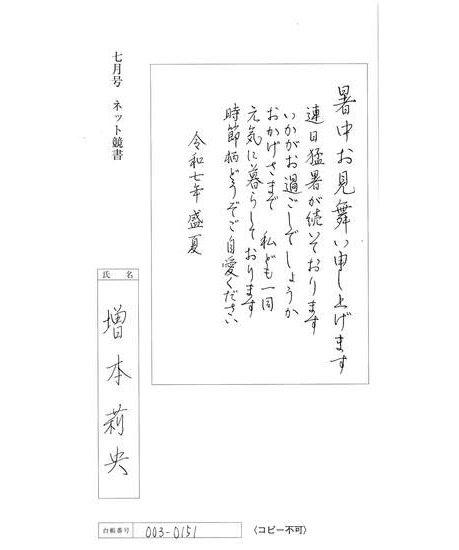 七月号 ネット競書
暑中お見舞い申し上げます
連日猛暑が続いております
いかがお過ごしでしょうか
おかげさまで 私ども一同
元気に暮らしております
時節柄どうぞご自愛ください
令和七年 盛夏
氏名
増本莉央
台帳番号 003-0151
〈コピー不可〉